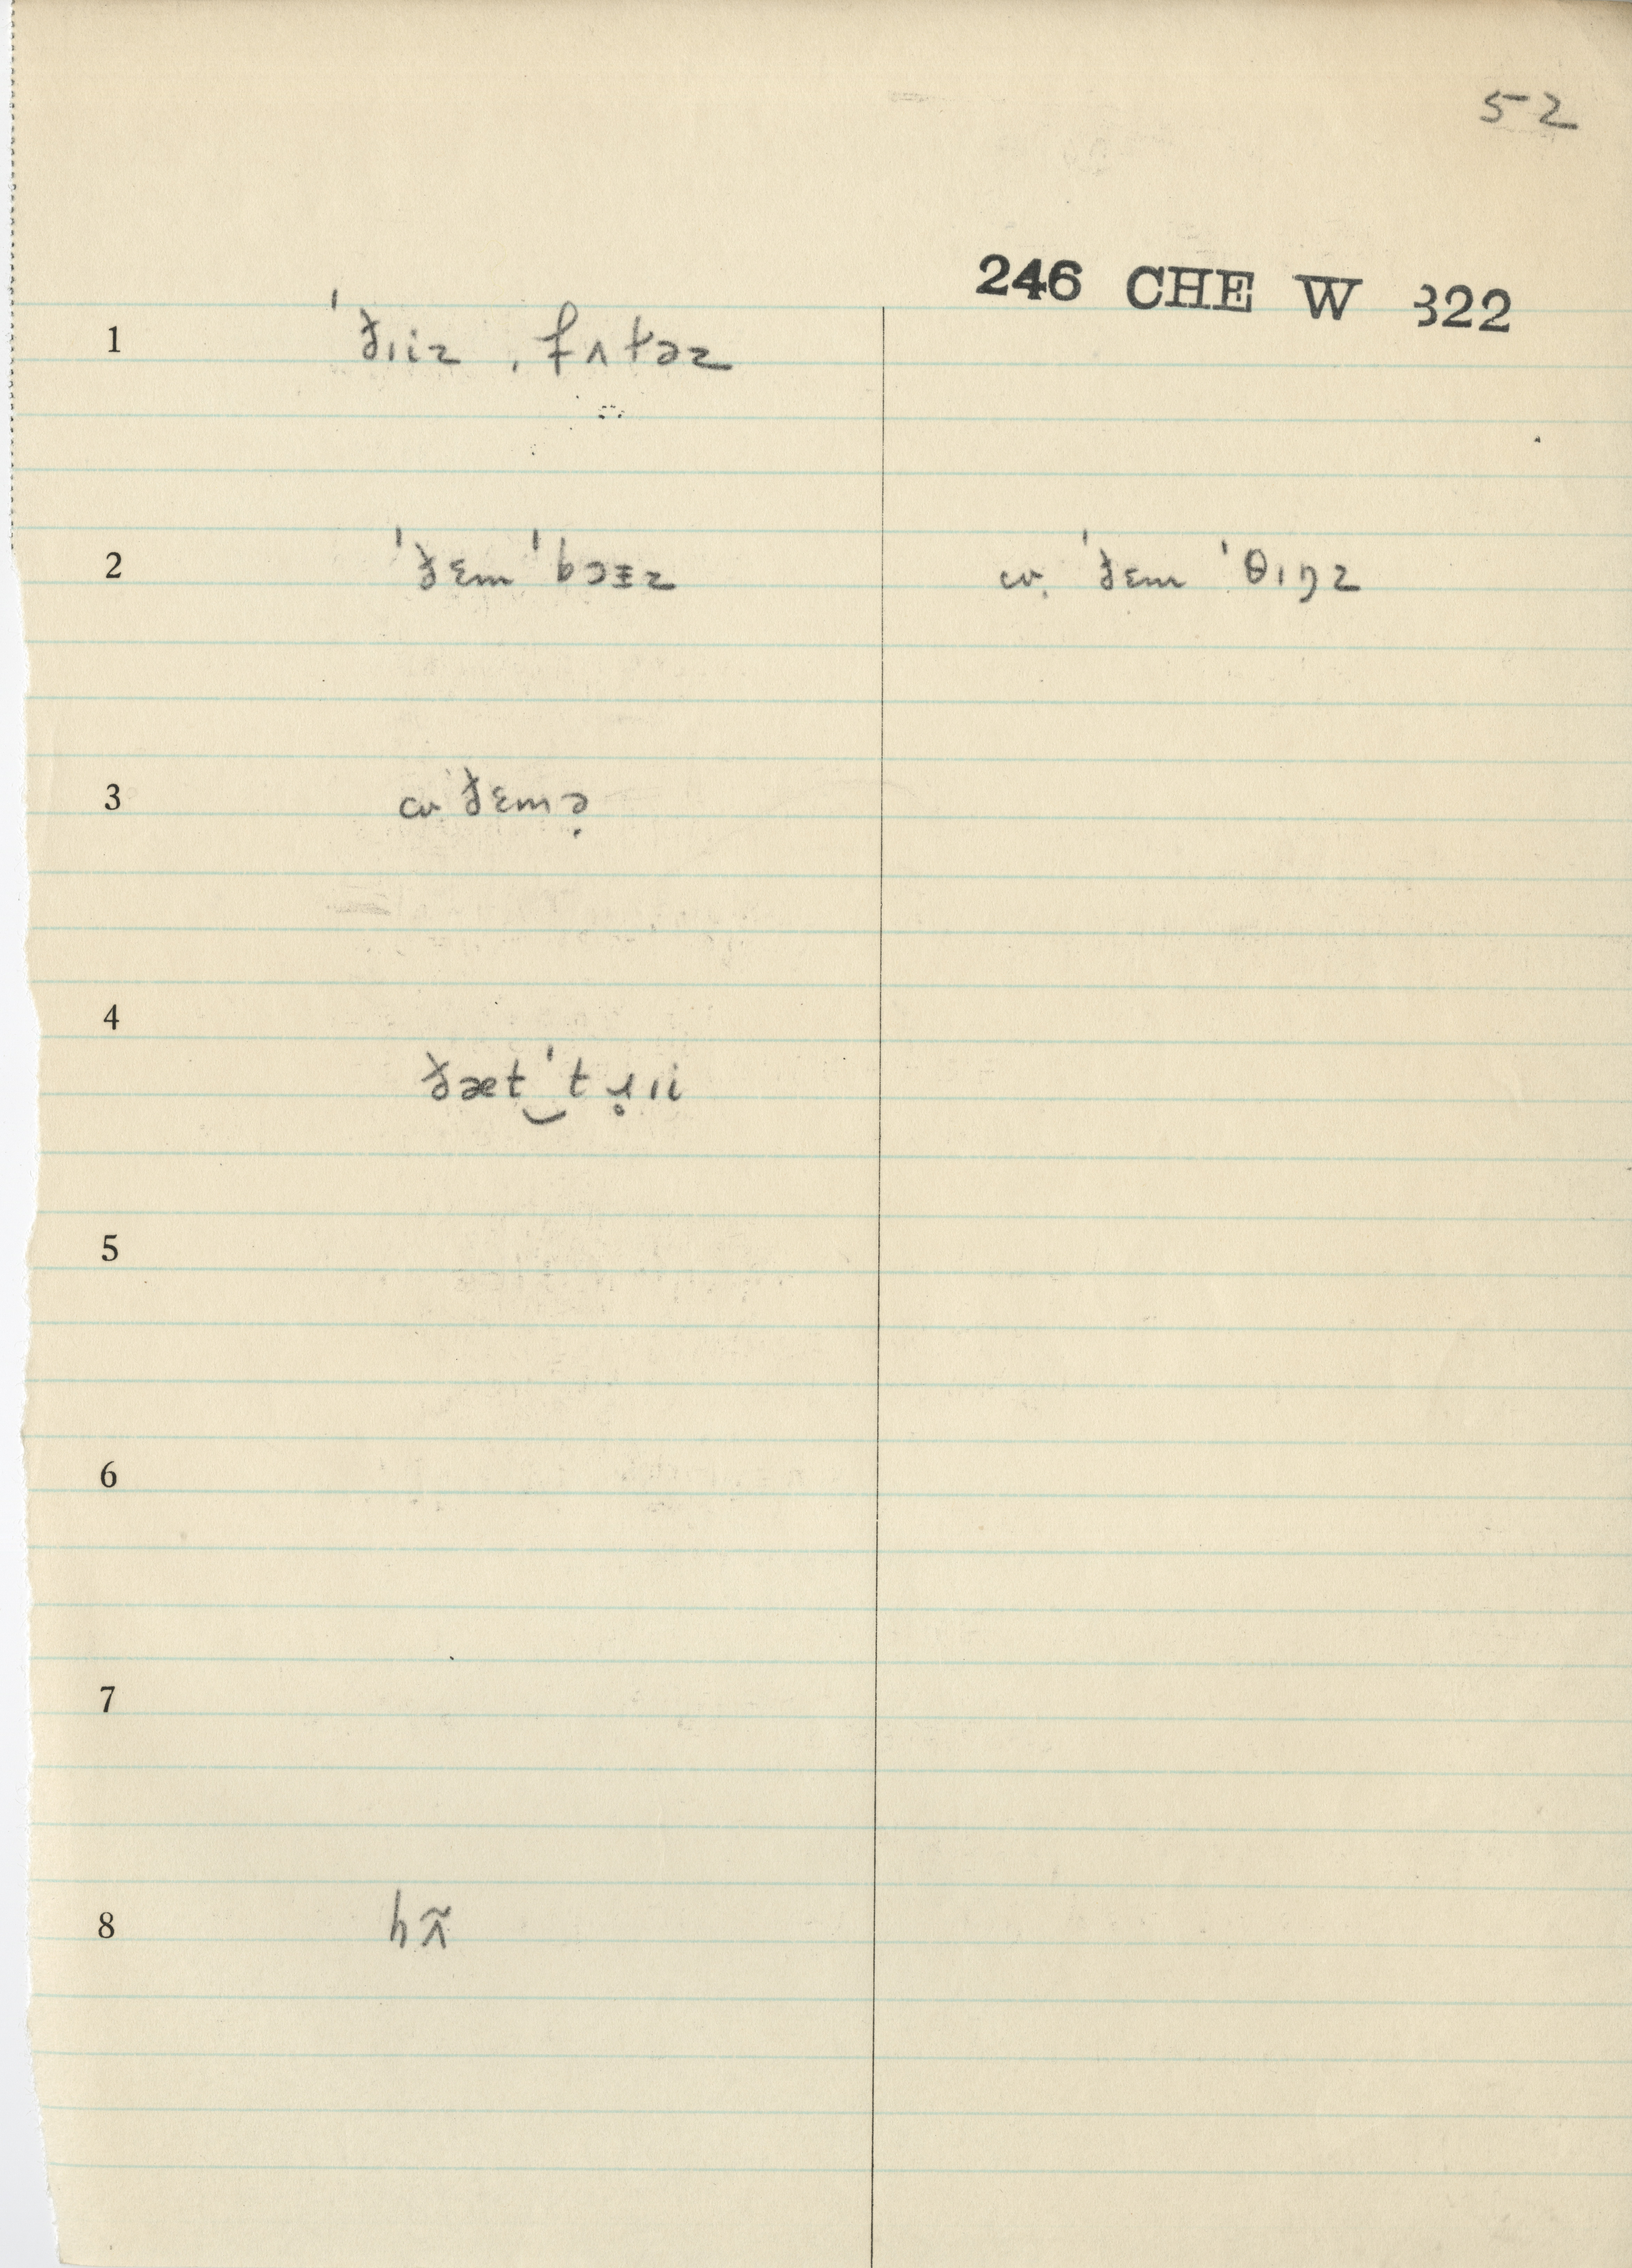 52
246 CHE W 322
1 ˈðɪiz ˌfʌtəz
2 ˈðɛm ˈbɔᵻz ɑʋ̣ ˈðɛm ˈθɪŋz
3 ɑʋ ˈðɛmə̣
4
ðæt‿ˈtɹ̥ɪi
5
6
7
8 hʌ̃